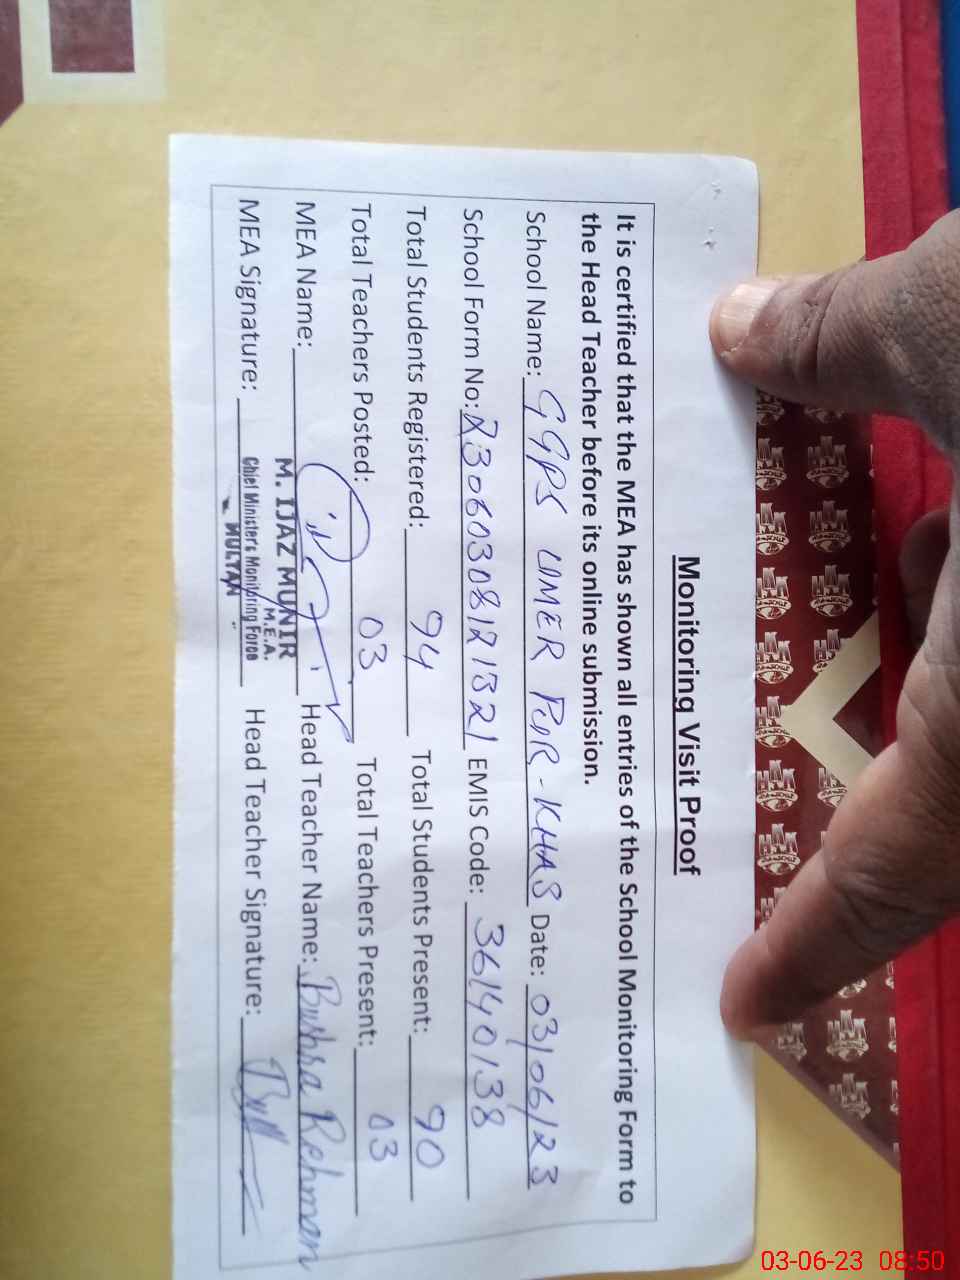 Monitoring Visit Proof
It is certified that the MEA has shown all entries of the School Monitoring Form to
the Head Teacher before its online submission.
School Name: GGPS UMER PUR-KHAS Date: 03/06/23
School Form No: 23060308121321 EMIS Code: 36140138
Total Students Registered: 94 Total Students Present: 90
Total Teachers Posted: 03 Total Teachers Present: 03
MEA Name: M. IJAZ MUNIR Head Teacher Name: Bushra Rehman
M.E.A.
MEA Signature: Chief Ministers Monitoring Force Head Teacher Signature:
MULTAN
03-06-23 08:50